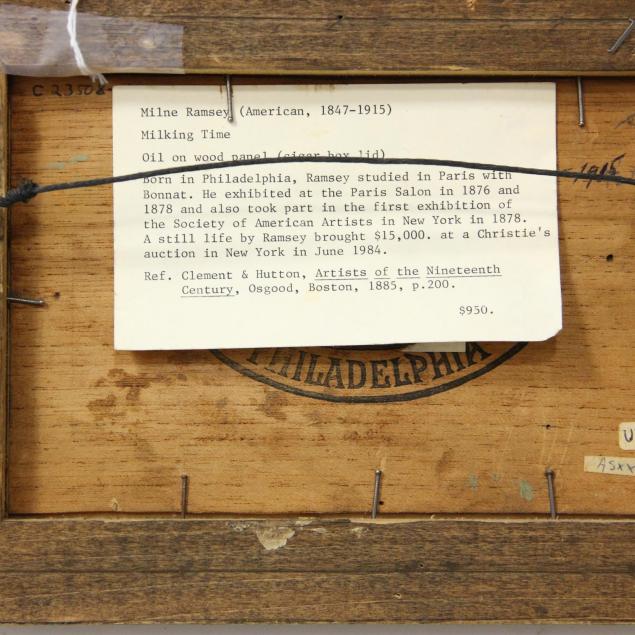 C 23508
Milne Ramsey (American, 1847-1915)
Milking Time
Oil on wood panel (cigar box lid)
Born in Philadelphia, Ramsey studied in Paris with
Bonnat. He exhibited at the Paris Salon in 1876 and
1878 and also took part in the first exhibition of
the Society of American Artists in New York in 1878.
A still life by Ramsey brought $15,000. at a Christie's
auction in New York in June 1984.
Ref. Clement & Hutton, Artists of the Nineteenth
Century, Osgood, Boston, 1885, p.200.
$950.
1915
PHILADELPHIA
U
Asxx